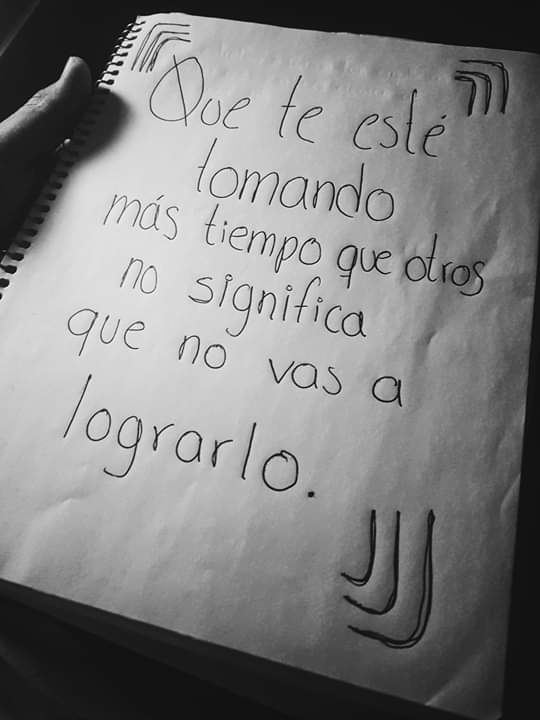 Que te esté
tomando
más tiempo que otros
no significa
que no vas a
lograrlo.